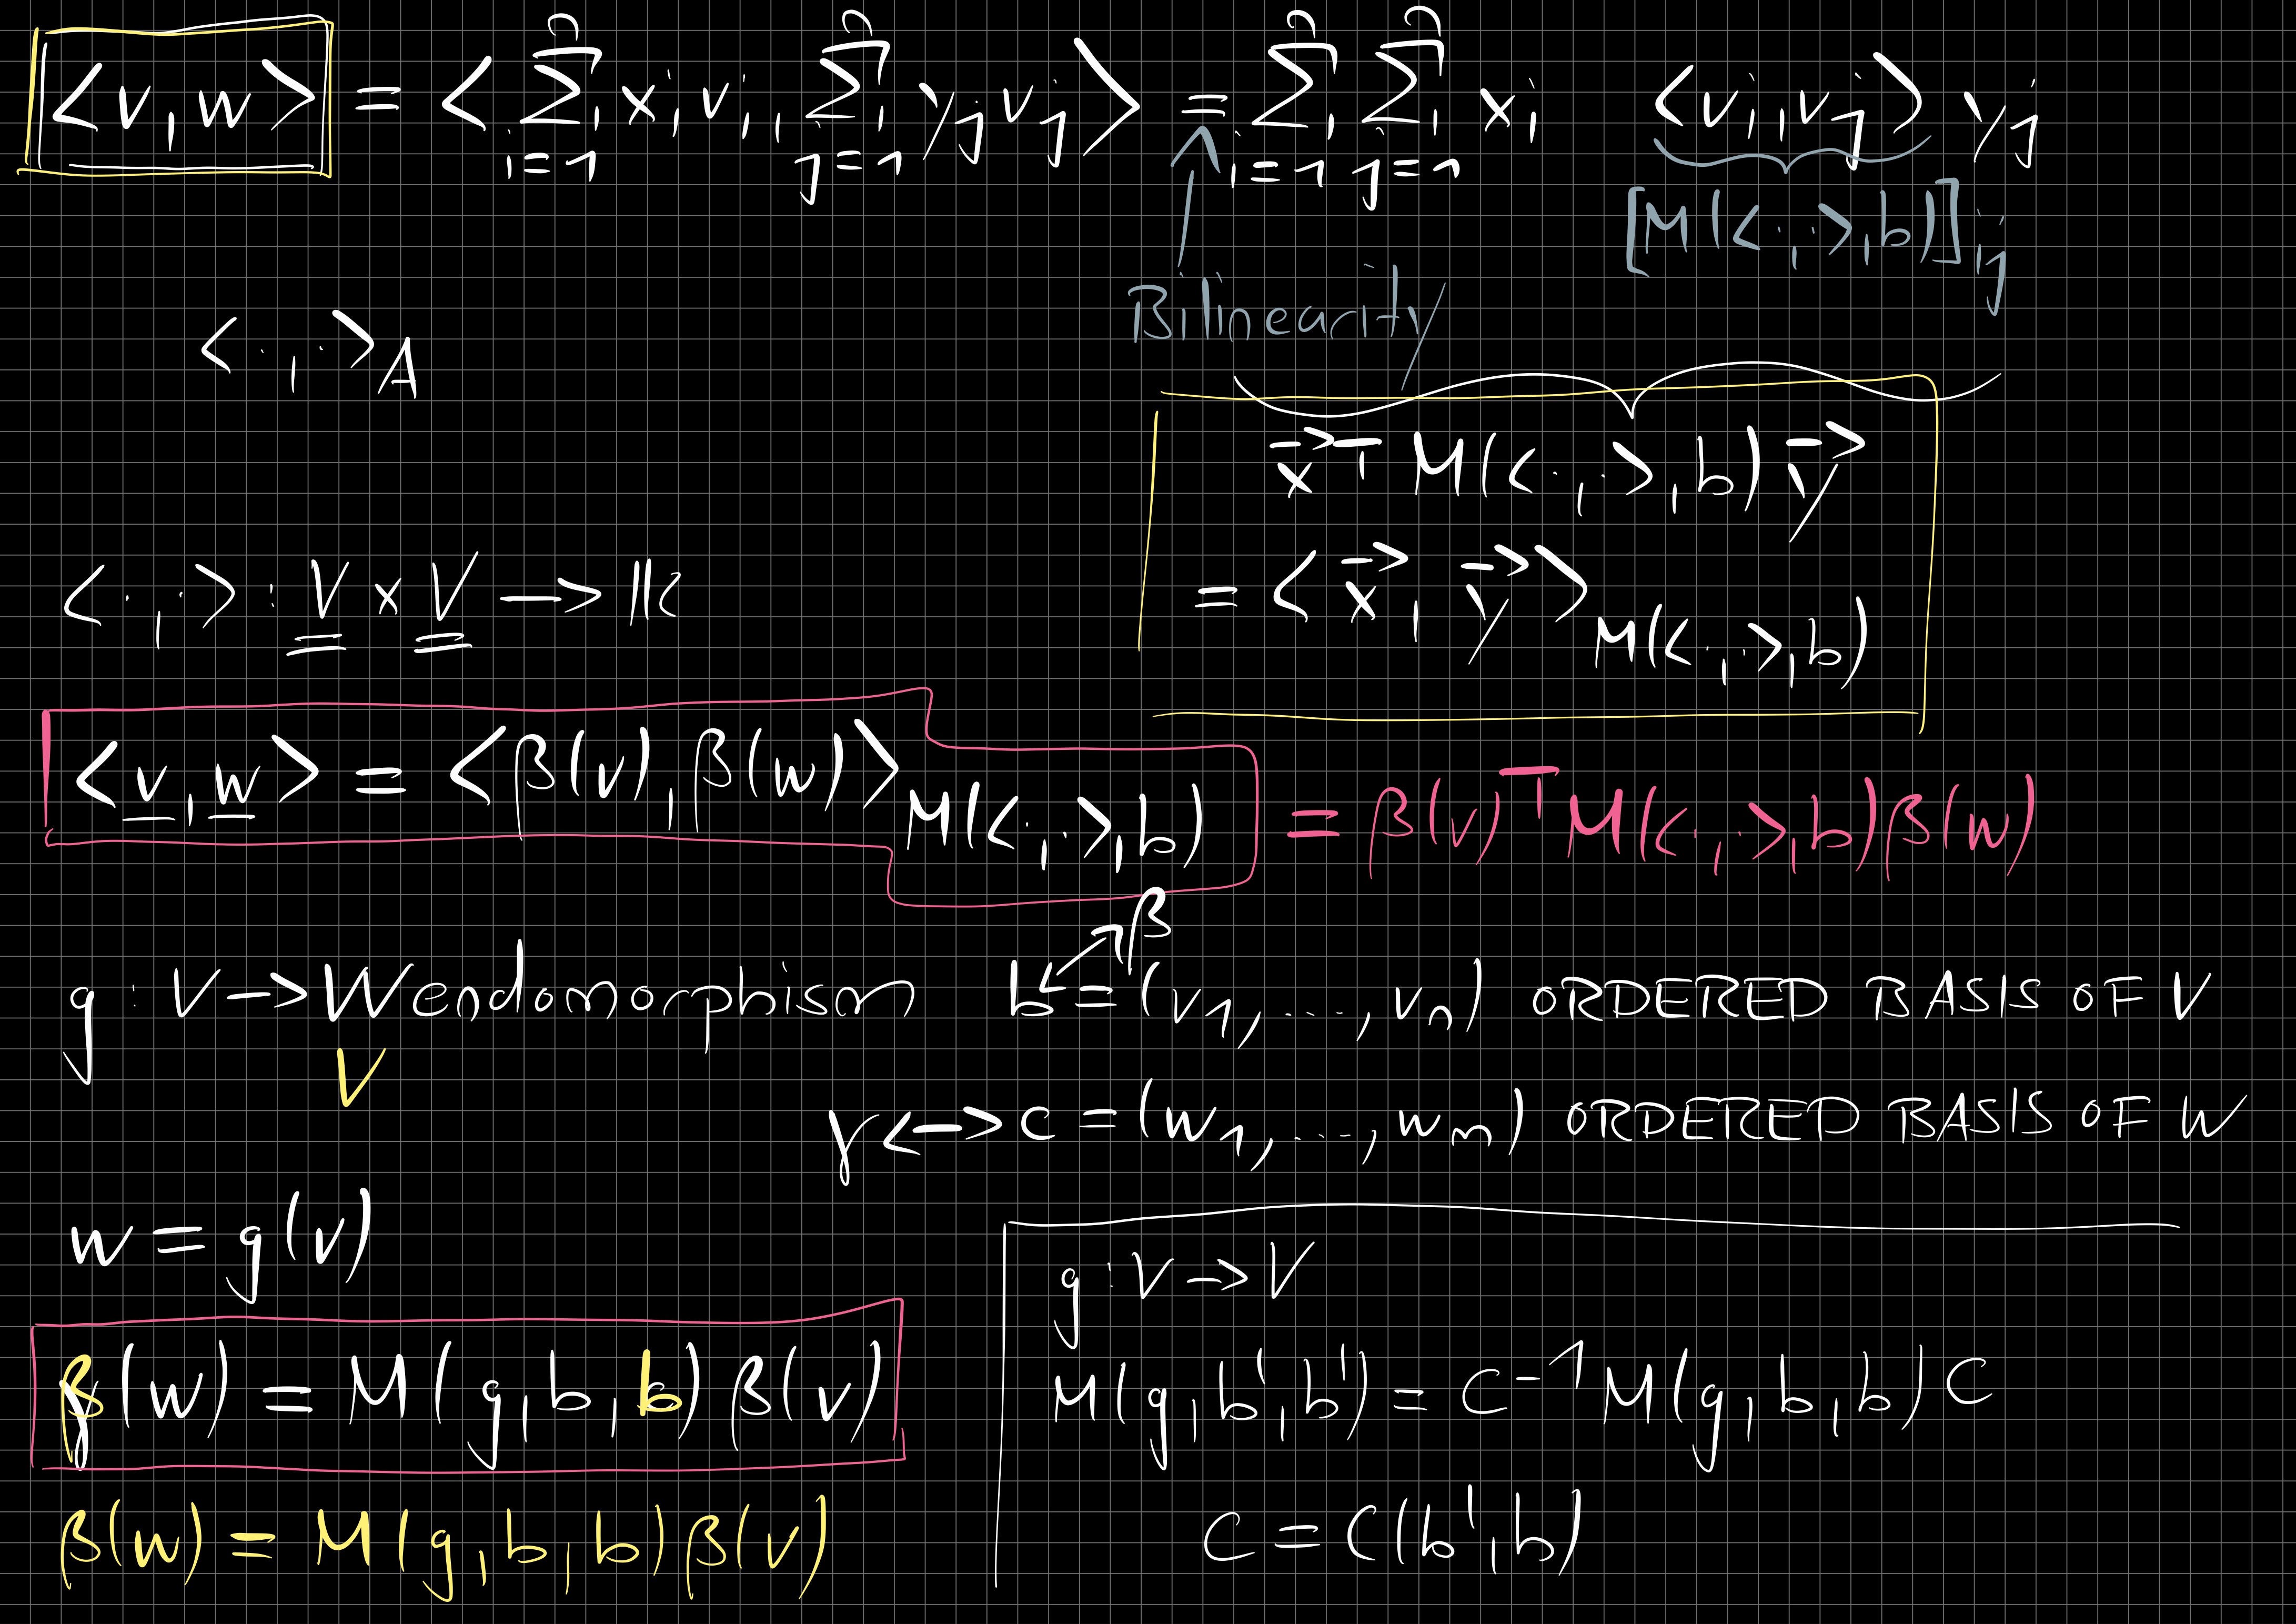 <v,w> = <∑ⁿᵢ₌₁ xᵢvᵢ, ∑ⁿⱼ₌₁ yⱼvⱼ> = ∑ⁿᵢ₌₁ ∑ⁿⱼ₌₁ xᵢ <vᵢ,vⱼ> yⱼ
[M(<·,·>,b)]ᵢⱼ
Bilinearity
<·,·>_A
x⃗ᵀ M(<·,·>,b) y⃗
<·,·> : V × V → 𝕂
= <x⃗, y⃗>_M(<·,·>,b)
<v,w> = <β(v), β(w)>_M(<·,·>,b) = β(v)ᵀ M(<·,·>,b) β(w)
β
g : V → W endomorphism b = (v₁, ..., vₙ) ORDERED BASIS OF V
V
γ <-> c = (w₁, ..., wₙ) ORDERED BASIS OF W
w = g(v)
g : V → V
β(w) = M(g,b,b) β(v)
M(g,b',b') = C⁻¹ M(g,b,b) C
β(w) = M(g,b,b) β(v)
C = C(b',b)